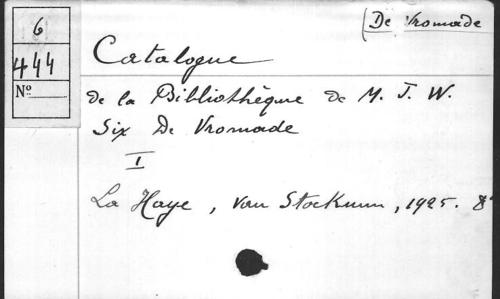 6
444
Nº
[De Vromade
Catalogue
de la Bibliothèque de M. J. W.
Six De Vromade
I
La Haye, van Stockum, 1925. 8º